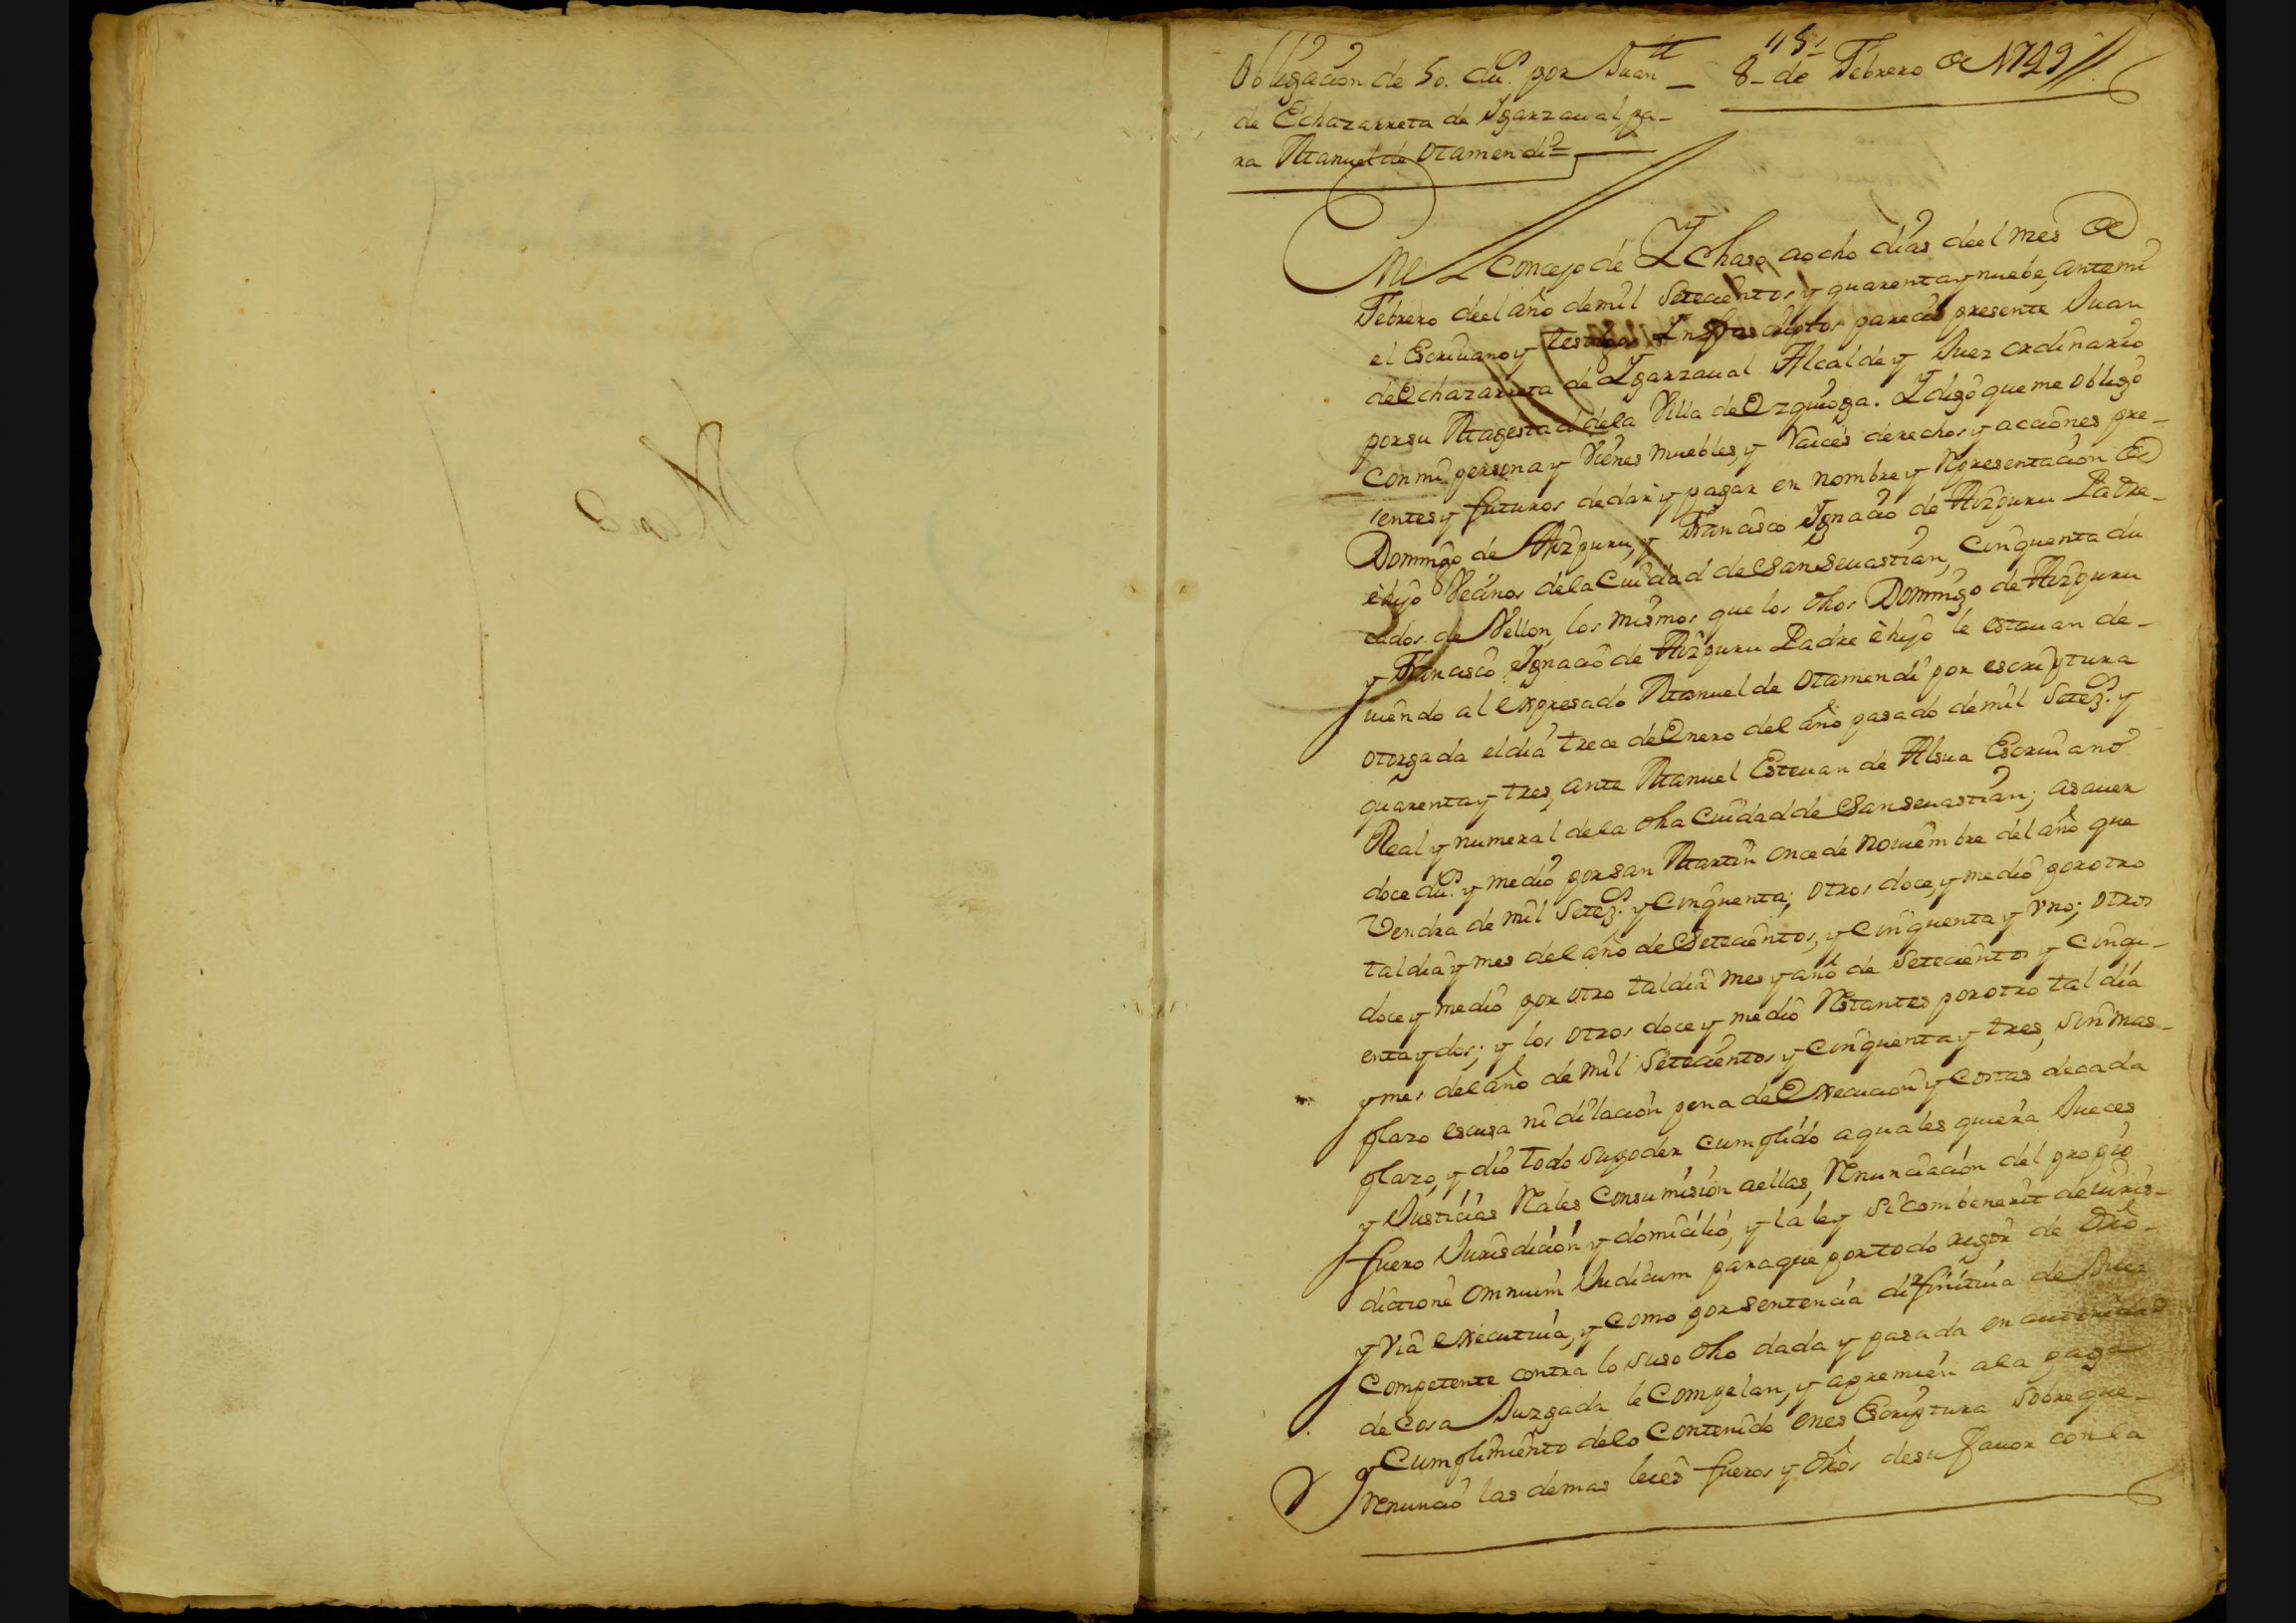 Obligacion de 50. du.s por Juan
de Echazarreta de Ygarzaual, pa-
ra Manuel de Otamendi=
8- de Febrero de 1749
En el Concejo de Ychaso, a ocho dias deel mes de
Febrero deel año de mil Setecientos y quarenta y nuebe, ante mi
el Escriuano y testigos Infrascriptos parecio presente Juan
de Echazarreta de Ygarzaual Alcalde y Juez ordinario
por su Magestad de la Villa de Ezquioga. Y dijo que me obligo
con mi persona y Vienes muebles, y Raices derechos y acciones pre-
sentes y futuros de dar y pagar en nombre y Representacion de
Domingo de Aizpuru, y Francisco Ignacio de Aizpuru Padre
è hijo Vecinos de la Ciudad de San Seuastian, cinquenta du
cados de Vellon, los mismos que los dhos Domingo de Aizpuru
y Francisco Ignacio de Aizpuru Padre è hijo le estauan de-
uiendo al expresado Manuel de Otamendi por escriptura
otorgada el dia trece de Enero del año pasado de mil Setez.s y
quarenta y tres, ante Manuel Esteuan de Alsua Escriuano
Real y numeral de la dha Ciudad de San seuastian; asauer
doce du.s y medio por san Martin once de Nouiembre del año que
Vendra de mil Setez.s y Cinquenta; otros doce, y medio por otro
tal dia y mes del año de Setecientos, y Cinquenta y vno; otros
doce y medio por otro tal dia mes y año de Setecientos y Cinqu-
enta y dos; y los otros doce y medio Restantes por otro tal dia
y mes del año de mil Setecientos y Cinquenta y tres, sin mas-
plazo escusa ni dilacion pena de Execucion y costas de cada
plazo, y dio todo su poder cumplido a quales quiera Jueces
y Justicias Rales Con sumision a ellas, Renunciacion del propio
fuero Jurisdicion y domicilio, y la ley Si combenerit de Juris-
dictione omnium Judicum para que por todo rigor de dro-
y via executiua, y como por sentencia difinitiua de Juez
Competente contra lo suso dho dada y pasada en autoridad
de Cosa Juzgada le Compelan, y apremien a la paga
y Cumplimiento de lo Contenido en es Escriptura sobre que-
Renuncio las demas leies fueros y dros de su fauor con la